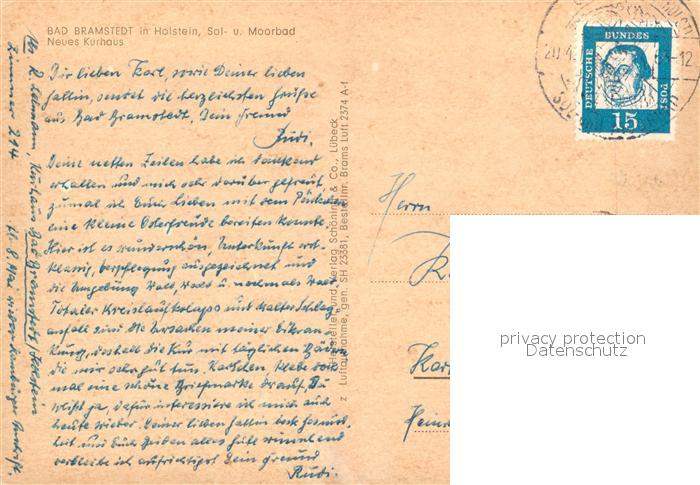 BAD BRAMSTEDT in Holstein, Sol- u. Moorbad
Neues Kurhaus
Dir lieben Karl, sowie Deiner lieben
Gattin, sendet die herzlichsten Grüße
aus Bad Bramstedt, Dein Freund
Rudi.
Deine netten Zeilen habe ich dankend
erhalten und mich sehr darüber gefreut,
zumal ich Euch Lieben mit dem Päckchen
eine kleine Osterfreude bereiten konnte.
Hier ist es wunderschön, Unterkunft erst-
klassig, Verpflegung ausgezeichnet und
die Umgebung Wald, Wald u. nochmals Wald.
Totaler Kreislaufkollaps und Schlag-
anfall sind die Ursachen meiner Erkran-
kung, deshalb die Kur mit täglichen Bädern
die mir sehr gut tun. Karlchen, klebe doch
mal eine schöne Briefmarke drauf, Du
weißt ja, dafür interessiere ich mich auch
heute wieder. Deiner lieben Gattin beste Gesund-
heit und Euch beiden alles Gute wünschend
verbleibe ich aufrichtigst Dein Freund
Rudi.
R. Lehmann, Kurhaus Bad Bramstedt/Holstein
Zimmer 214
8. Mai wieder Hamburger
Hersteller und Verlag Schöning & Co., Lübeck
z Luftaufnahme, gen. SH 23381, Bestellnr. Brams Luft 2374 A-f
DEUTSCHE BUNDES POST
15
20.4.
-12
Herrn
Kar
Hein
privacy protection
Datenschutz